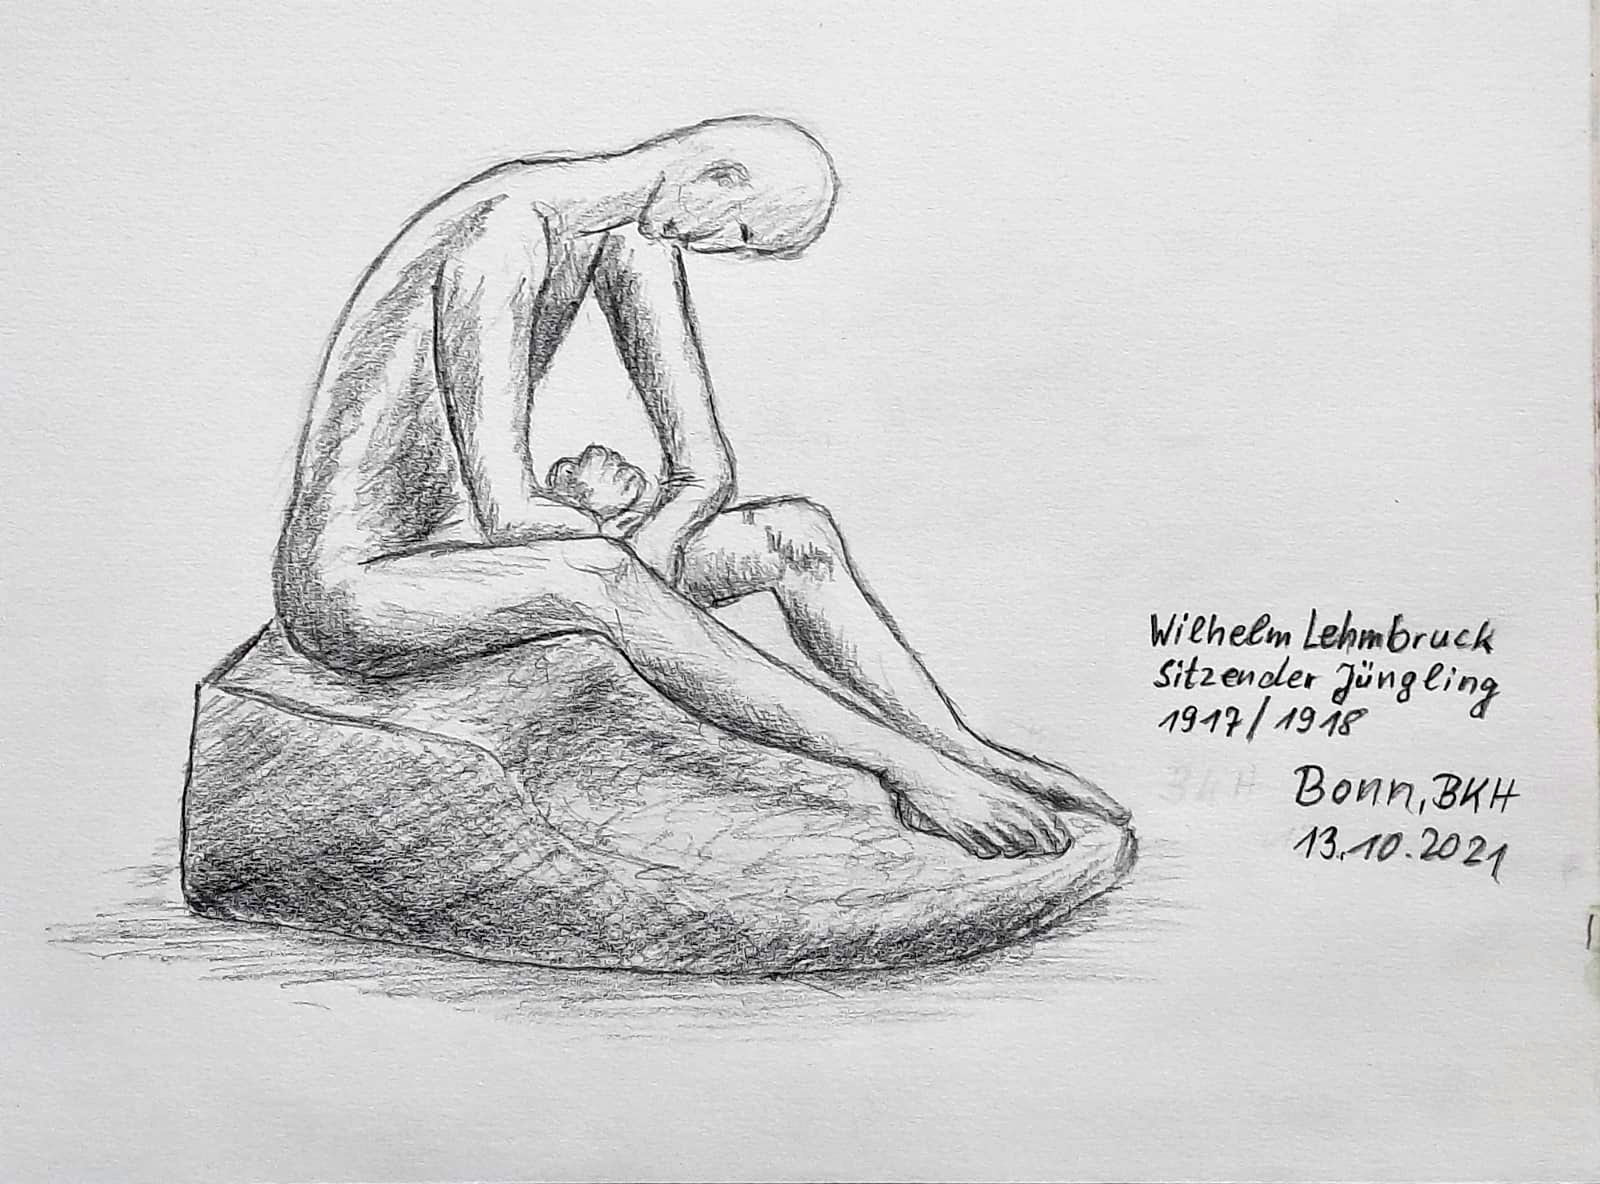 Wilhelm Lehmbruck
Sitzender Jüngling
1917/1918
BKH
Bonn, BKH
13.10.2021